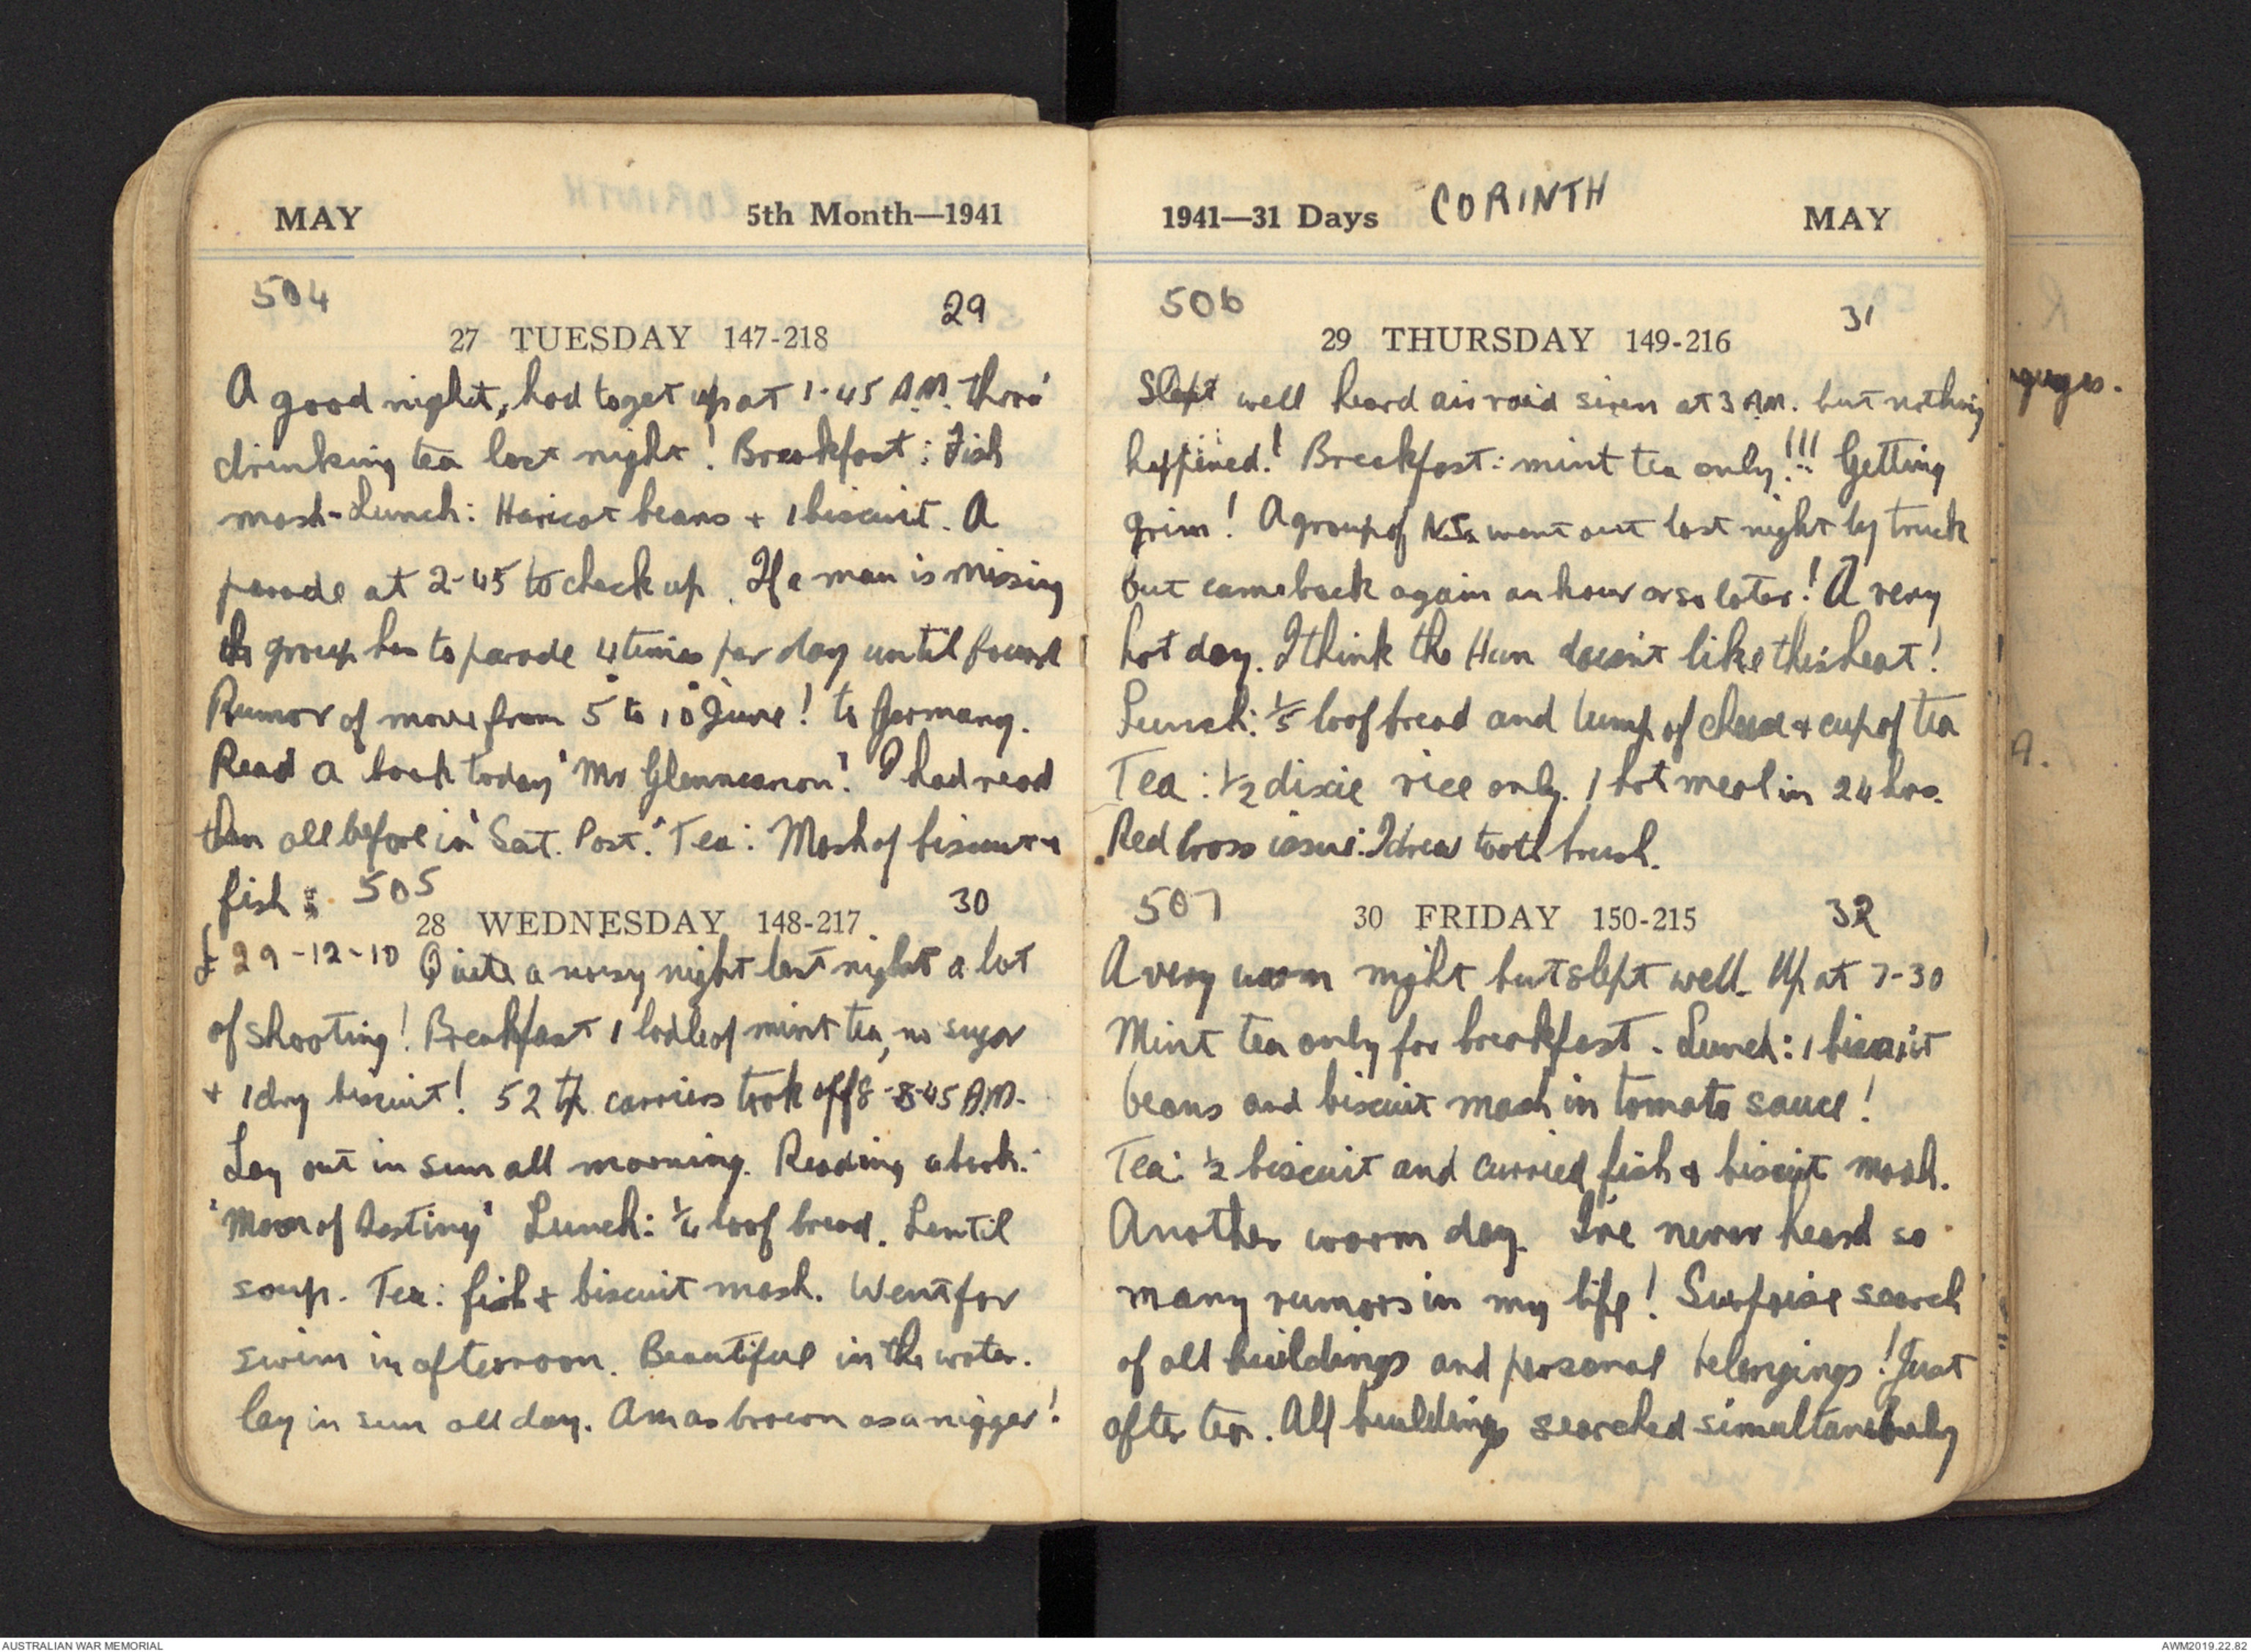 MAY 5th Month—1941
504 29
27 TUESDAY 147-218
A good night, had to get up at 1-45 A.M. thro'
drinking tea last night! Breakfast: Fish
mash-Lunch: Haricot beans + 1 biscuit. A
parade at 2-45 to check up. If a man is missing
the group has to parade 4 times per day until found
Rumor of move from 5 to 10 June! to Germany.
Read a book today "Mr Glenncannon". I had read
them all before in "Sat. Post." Tea: Mash of biscuit +
fish. 505 30
28 WEDNESDAY 148-217
£29-12-10 Quite a noisy night last night a lot
of shooting! Breakfast 1 ladle of mint tea, no sugar
+ 1 dry biscuit! 52 tp. carriers took off 8-8-45 A.M.
Lay out in sun all morning. Reading a book:
"Moon of Destiny" Lunch: 1/4 loaf bread. Lentil
soup. Tea: fish + biscuit mash. Went for
swim in afternoon. Beautiful in the water.
lay in sun all day. Am as brown as a nigger!
1941—31 Days CORINTH MAY
506 31
29 THURSDAY 149-216
Slept well heard air raid siren at 3 A.M. but nothing
happined! Breakfast: mint tea only!!! Getting
grim! A group of N.Zs went out last night by truck
but came back again an hour or so later! A very
hot day. I think the Hun doesn't like this heat!
Lunch: 1/5 loaf bread and lump of cheese + cup of tea
Tea: 1/2 dixie rice only. 1 hot meal in 24 hrs.
Red Cross issue: I drew tooth brush.
507 32
30 FRIDAY 150-215
A very warm night but slept well. Up at 7-30
Mint tea only for breakfast. Lunch: 1 biscuit
beans and biscuit mash in tomato sauce!
Tea: 1/2 biscuit and curried fish & biscuit mash.
Another warm day. I've never heard so
many rumors in my life! Surprise search
of all buildings and personal belongings! Just
after tea. All buildings searched simultaneously
AUSTRALIAN WAR MEMORIAL AWM2019.22.82